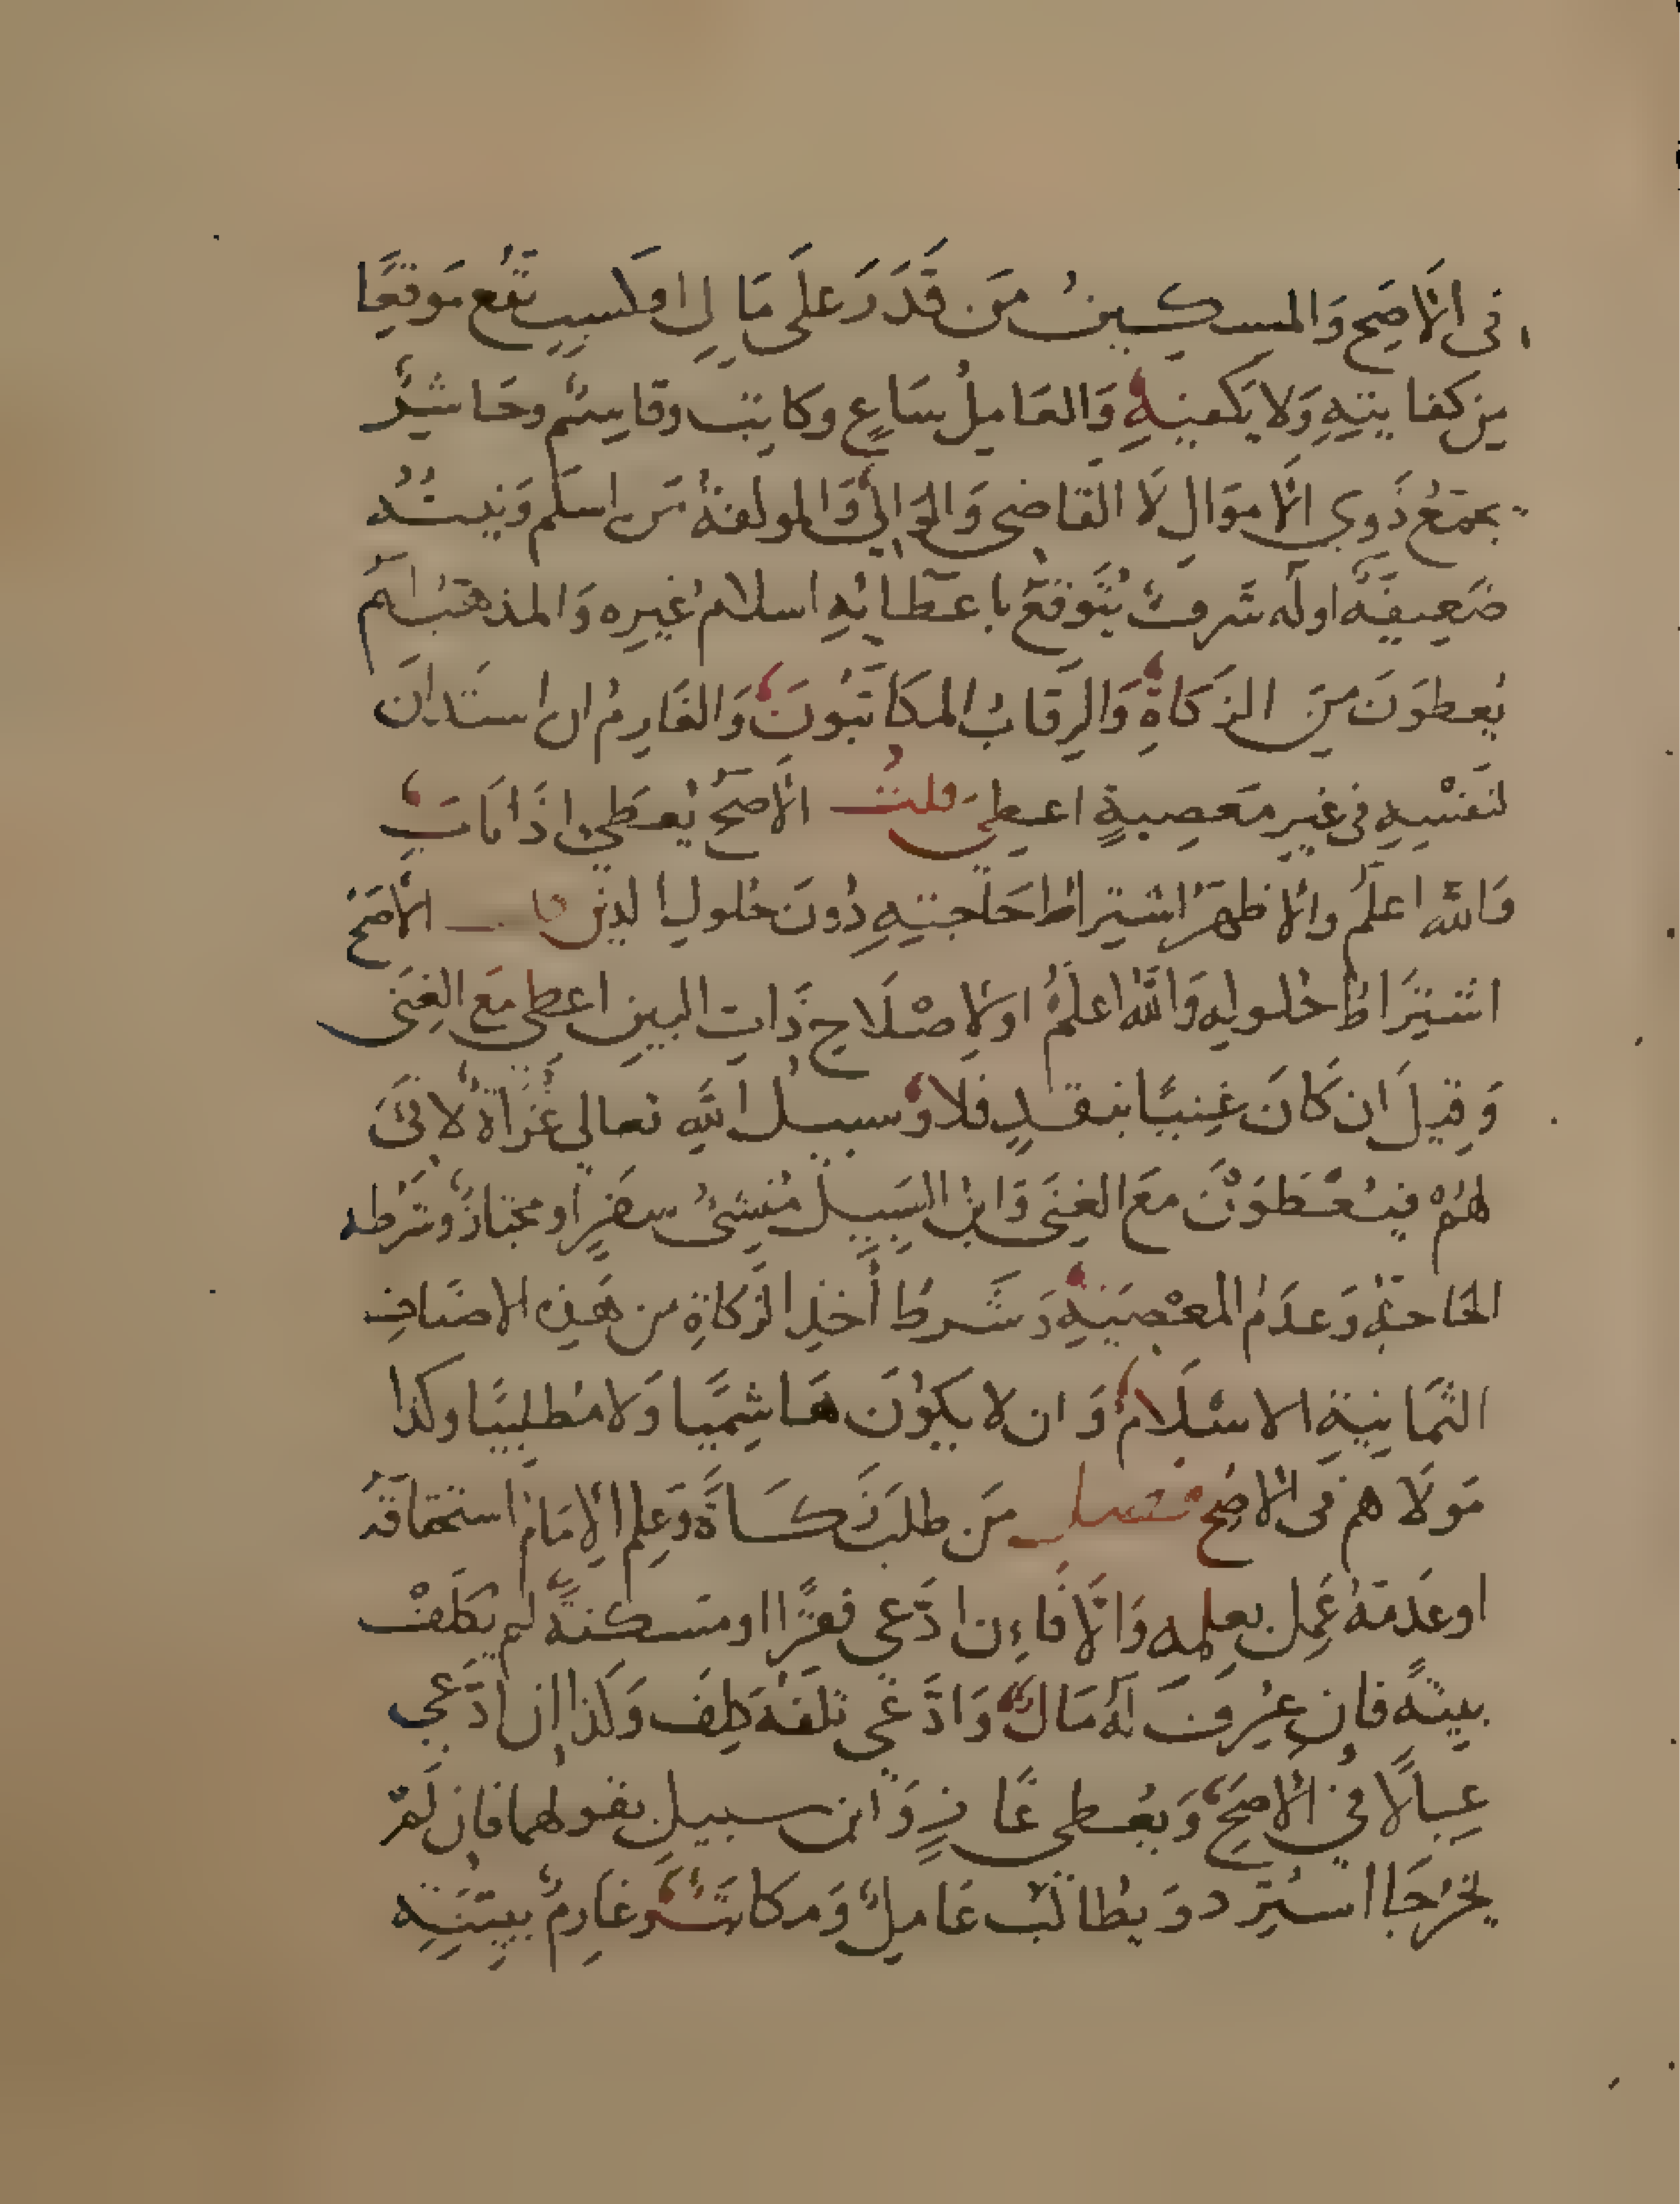 في الاصَح وَالمسكينُ مَن قَدَرَ علَى مَالٍ اوكَسبٍ يَقع مَوقعًا
مِن كفايتِهِ وَلا يَكفيهِ وَالعَاملُ سَاعٍ وكاتب وقاسِم وحَاشِرٌ
يجمَعُ ذَوي الامَوَال لَا القاضِى وَالوَالِي وَالمولفةُ مَن اسلَم وَنيتُه
ضَعِيفَةٌ اولَه شَرفٌ يُتَوقعُ باعطائِهِ اسلامُ غيره وَالمذهبُ انهم
يُعطَونَ مِنَ الزكَاةِ وَالرقابُ المكَاتَبُونَ وَالغَارِمُ ان استدانَ
لنفسِهِ فى غيرِ مَعصِيةٍ اعطِىَ قلتُ الاصَحُ يُعطَى اذَا تابَ
وَالله اعلَمُ والاظهَرُ اشتِراطُ حَاجتِهِ دُونَ حُلولِ الدينِ قلت الاصَحُ
اشتِرَاطُ حُلولِهِ وَالله اعلَمُ اولاصْلَاحِ ذَاتِ البينِ اعطى مَع الغِنَى
وَقيلَ ان كَانَ غنيًا بنقدٍ فلا وَسبيلُ اللهِ تعالى غُزَاةٌ لا فَىْءَ
لهُمْ فيُعْطَوْنَ مَعَ الغنَى وَابنُ السَبيلِ مُنشىُ سفرٍ او مجتازٌ وشَرْطه
الحَاجَةُ وَعدَمُ المعْصيَةِ وَشَرطُ أخذِ الزكَاةِ من هَذِه الاصنَافِ
الثمَانيةِ الاسْلَامُ وَان لا يكوُنَ هَاشِميًّا وَلا مُطلبيًّا وكذا
مَولَاهم فى الاصَح فصل مَن طلبَ زكَاةً وَعلِم الامَامُ استحقاقَهُ
اوعَدَمَهُ عَمِل بعلمِه وَالَّا فَاءِن ادَّعى فقرًا او مسكنةً لم يكَلفْ
بينةً فان عُرِفَ لَهُ مَالٌ وَادَّعَى تلفَهُ كلِفَ وَكذا ان ادَّعى
عِيالًا في الاصَحِ وَيُعطى غَازٍ وَابن سبيلٍ بقولهما فان لَم
يخرُجَا استُرِد وَيُطالَبُ عَامِلٌ وَمكاتَبٌ وَغَارِمٌ ببينَةٍ